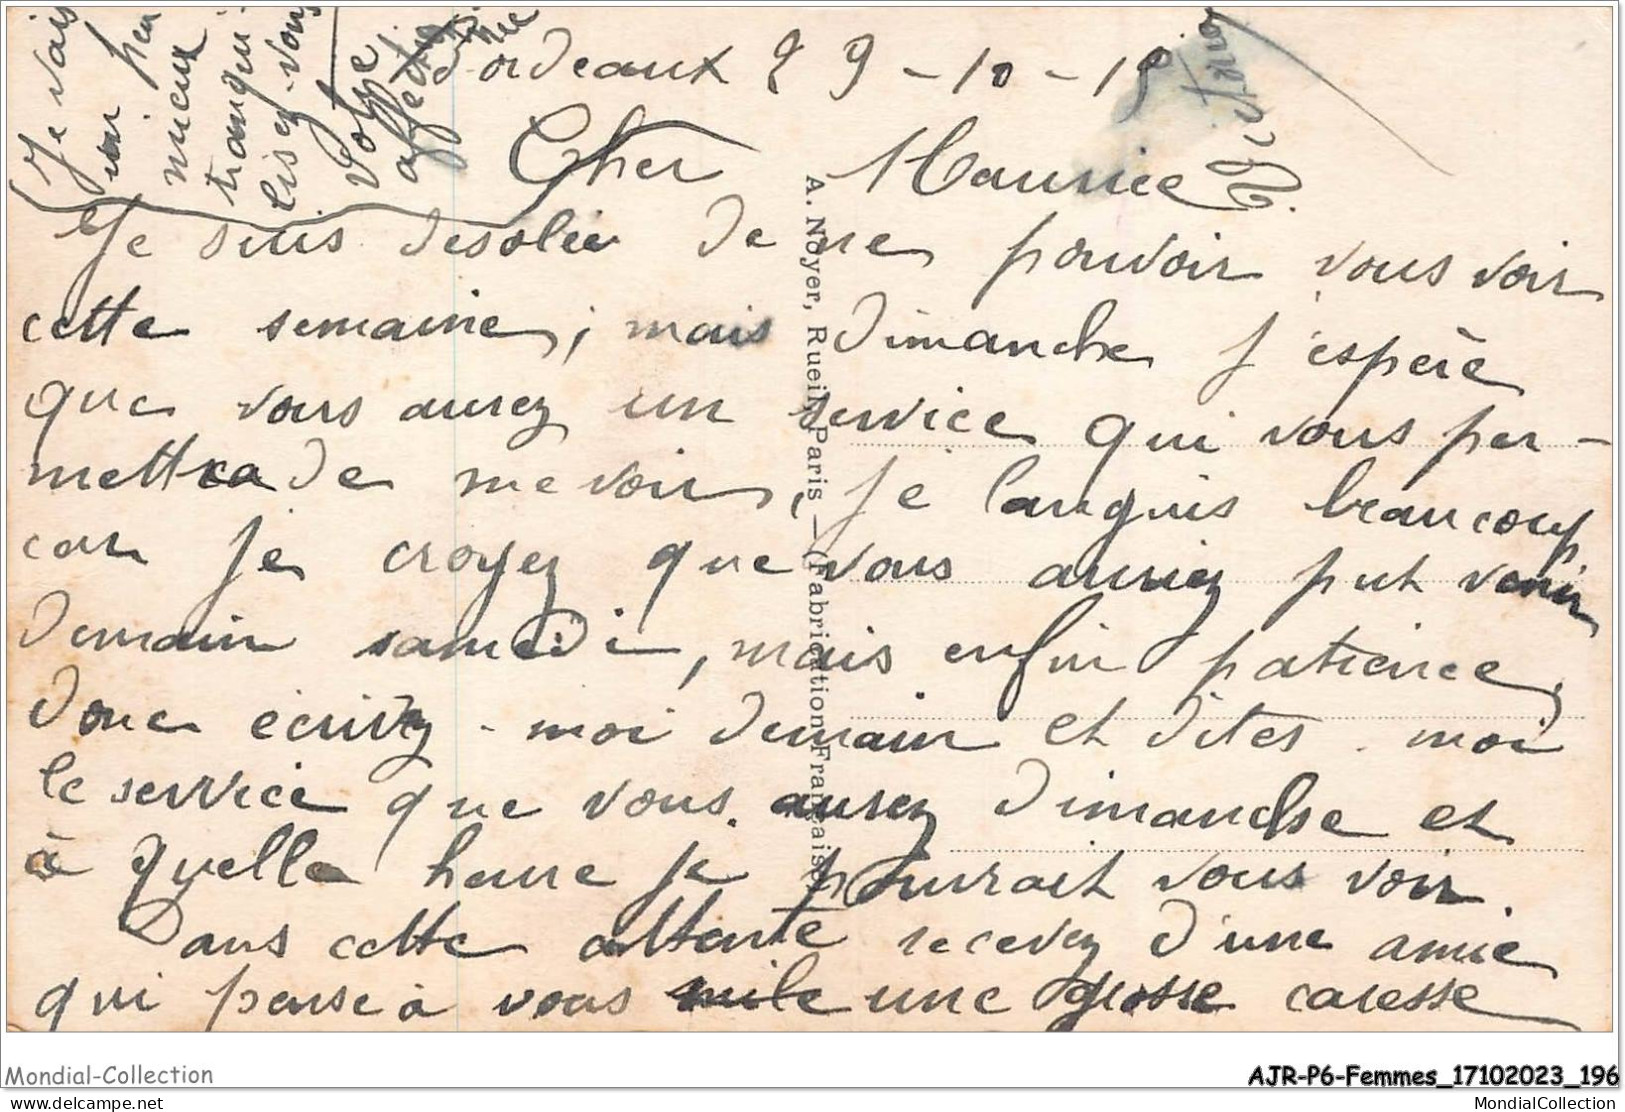 Bordeaux 29-10-19
Cher Maurice
Je suis désolée de ne pouvoir vous voir
cette semaine, mais dimanche j'espère
que vous aurez un service qui vous per-
mettra de me voir, je languis beaucoup
car je croyez que vous auriez put venir
demain samedi, mais enfin patience,
donc écrivez-moi demain et dites-moi
le service que vous aurez dimanche et
à quelle heure je pourrait vous voir.
Dans cette attente recevez d'une amie
qui pense à vous mile une grosse caresse
Je vais
un peu
mieux
tranqui-
lisez-vous
Votre
affectionnée
A. Noyer, Rueil, Paris — Fabrication Française
Mondial-Collection
AJR-P6-Femmes_17102023_196
delcampe.net
MondialCollection